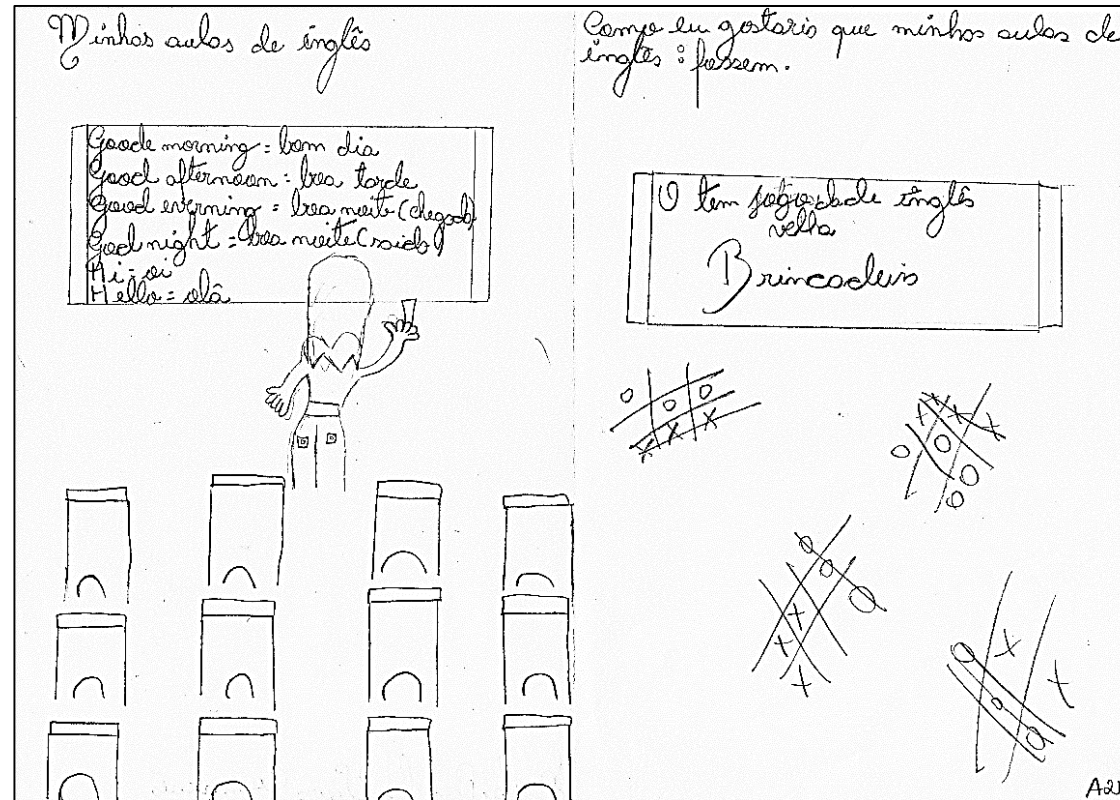 Minhas aulas de inglês
Goode morning = bom dia
Good afternoon = boa tarde
Good everning = boa noite (chegada)
God night = boa noite (saida)
Hi = oi
Hello = olá
Como eu gostaria que minhas aulas de
inglês : fossem.
O tem jogo da de inglês
velha
Brincadeis